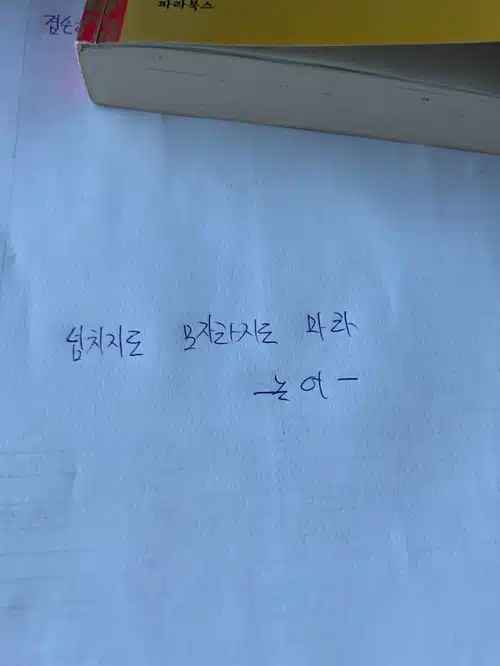 파라북스
겸손
넘치지도 모자라지도 마라
-논어-